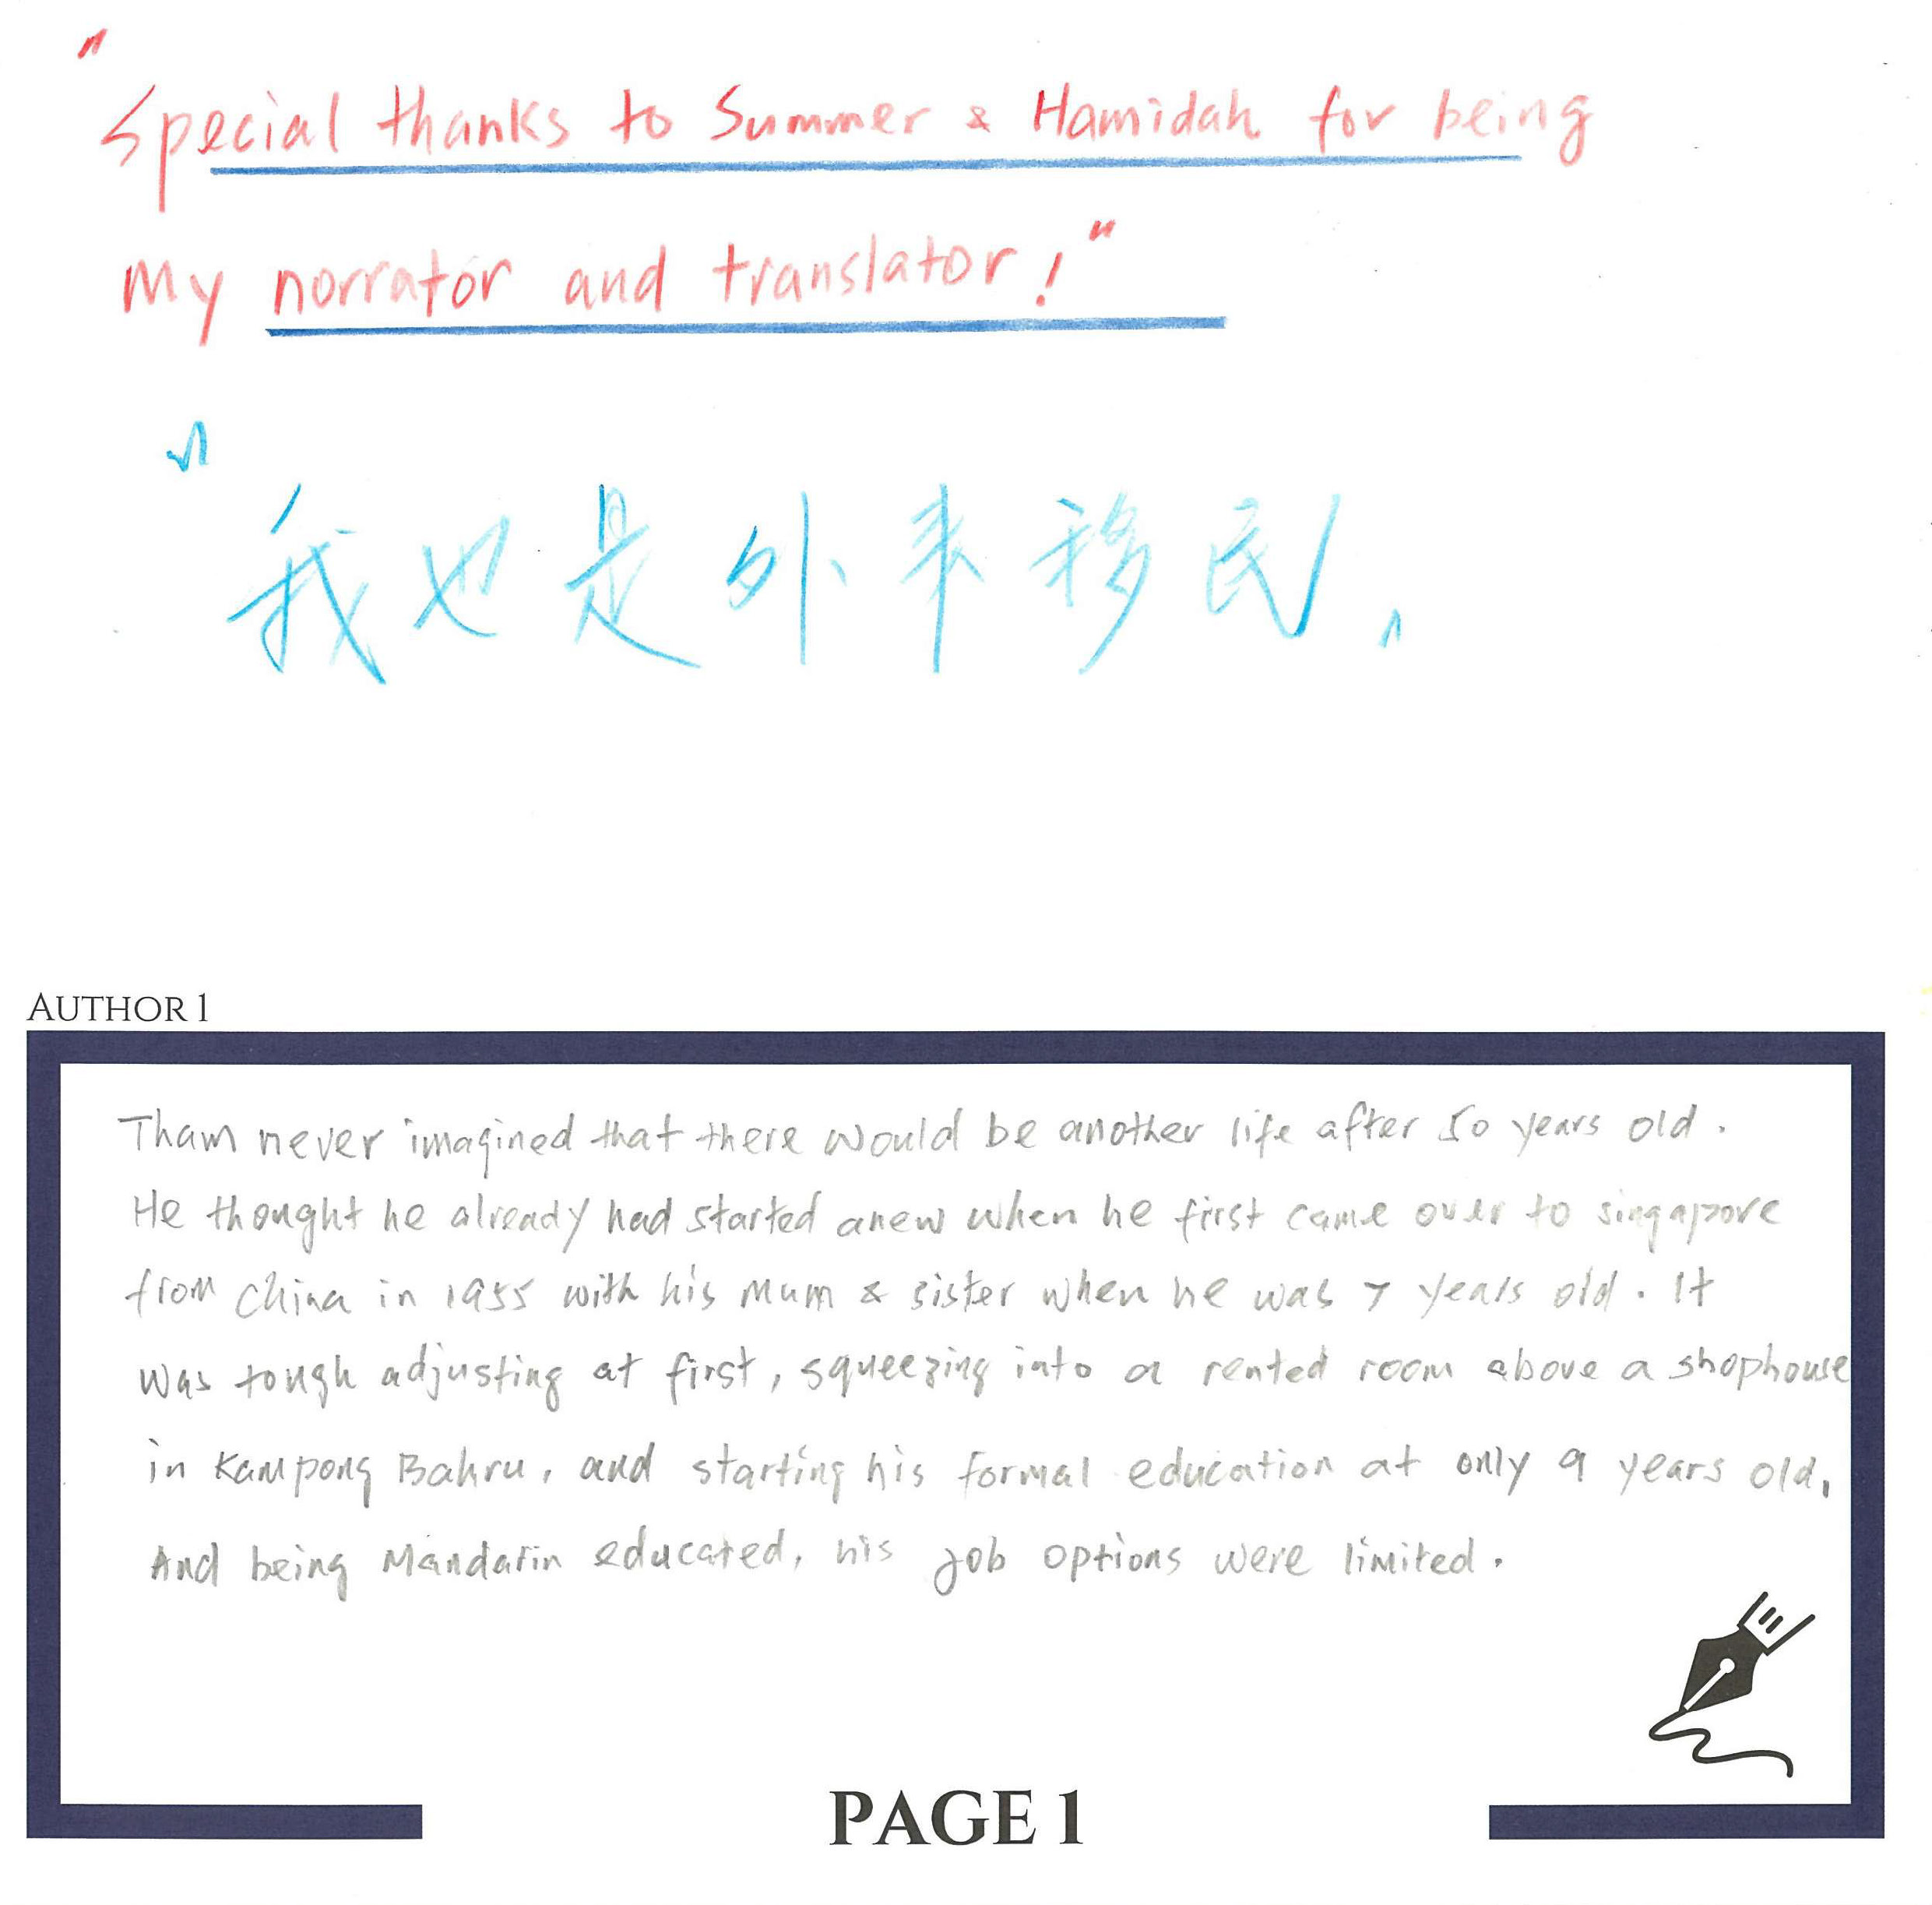 "Special thanks to Summer & Hamidah for being
my norrator and translator!"
"我也是外来移民"
AUTHOR 1
Tham never imagined that there would be another life after 50 years old.
He thought he already had started anew when he first came over to singapore
from China in 1955 with his mum & sister when he was 7 years old. It
was tough adjusting at first, squeezing into a rented room above a shophouse
in Kampong Bahru, and starting his formal education at only 9 years old,
And being Mandarin educated, his job options were limited.
PAGE 1